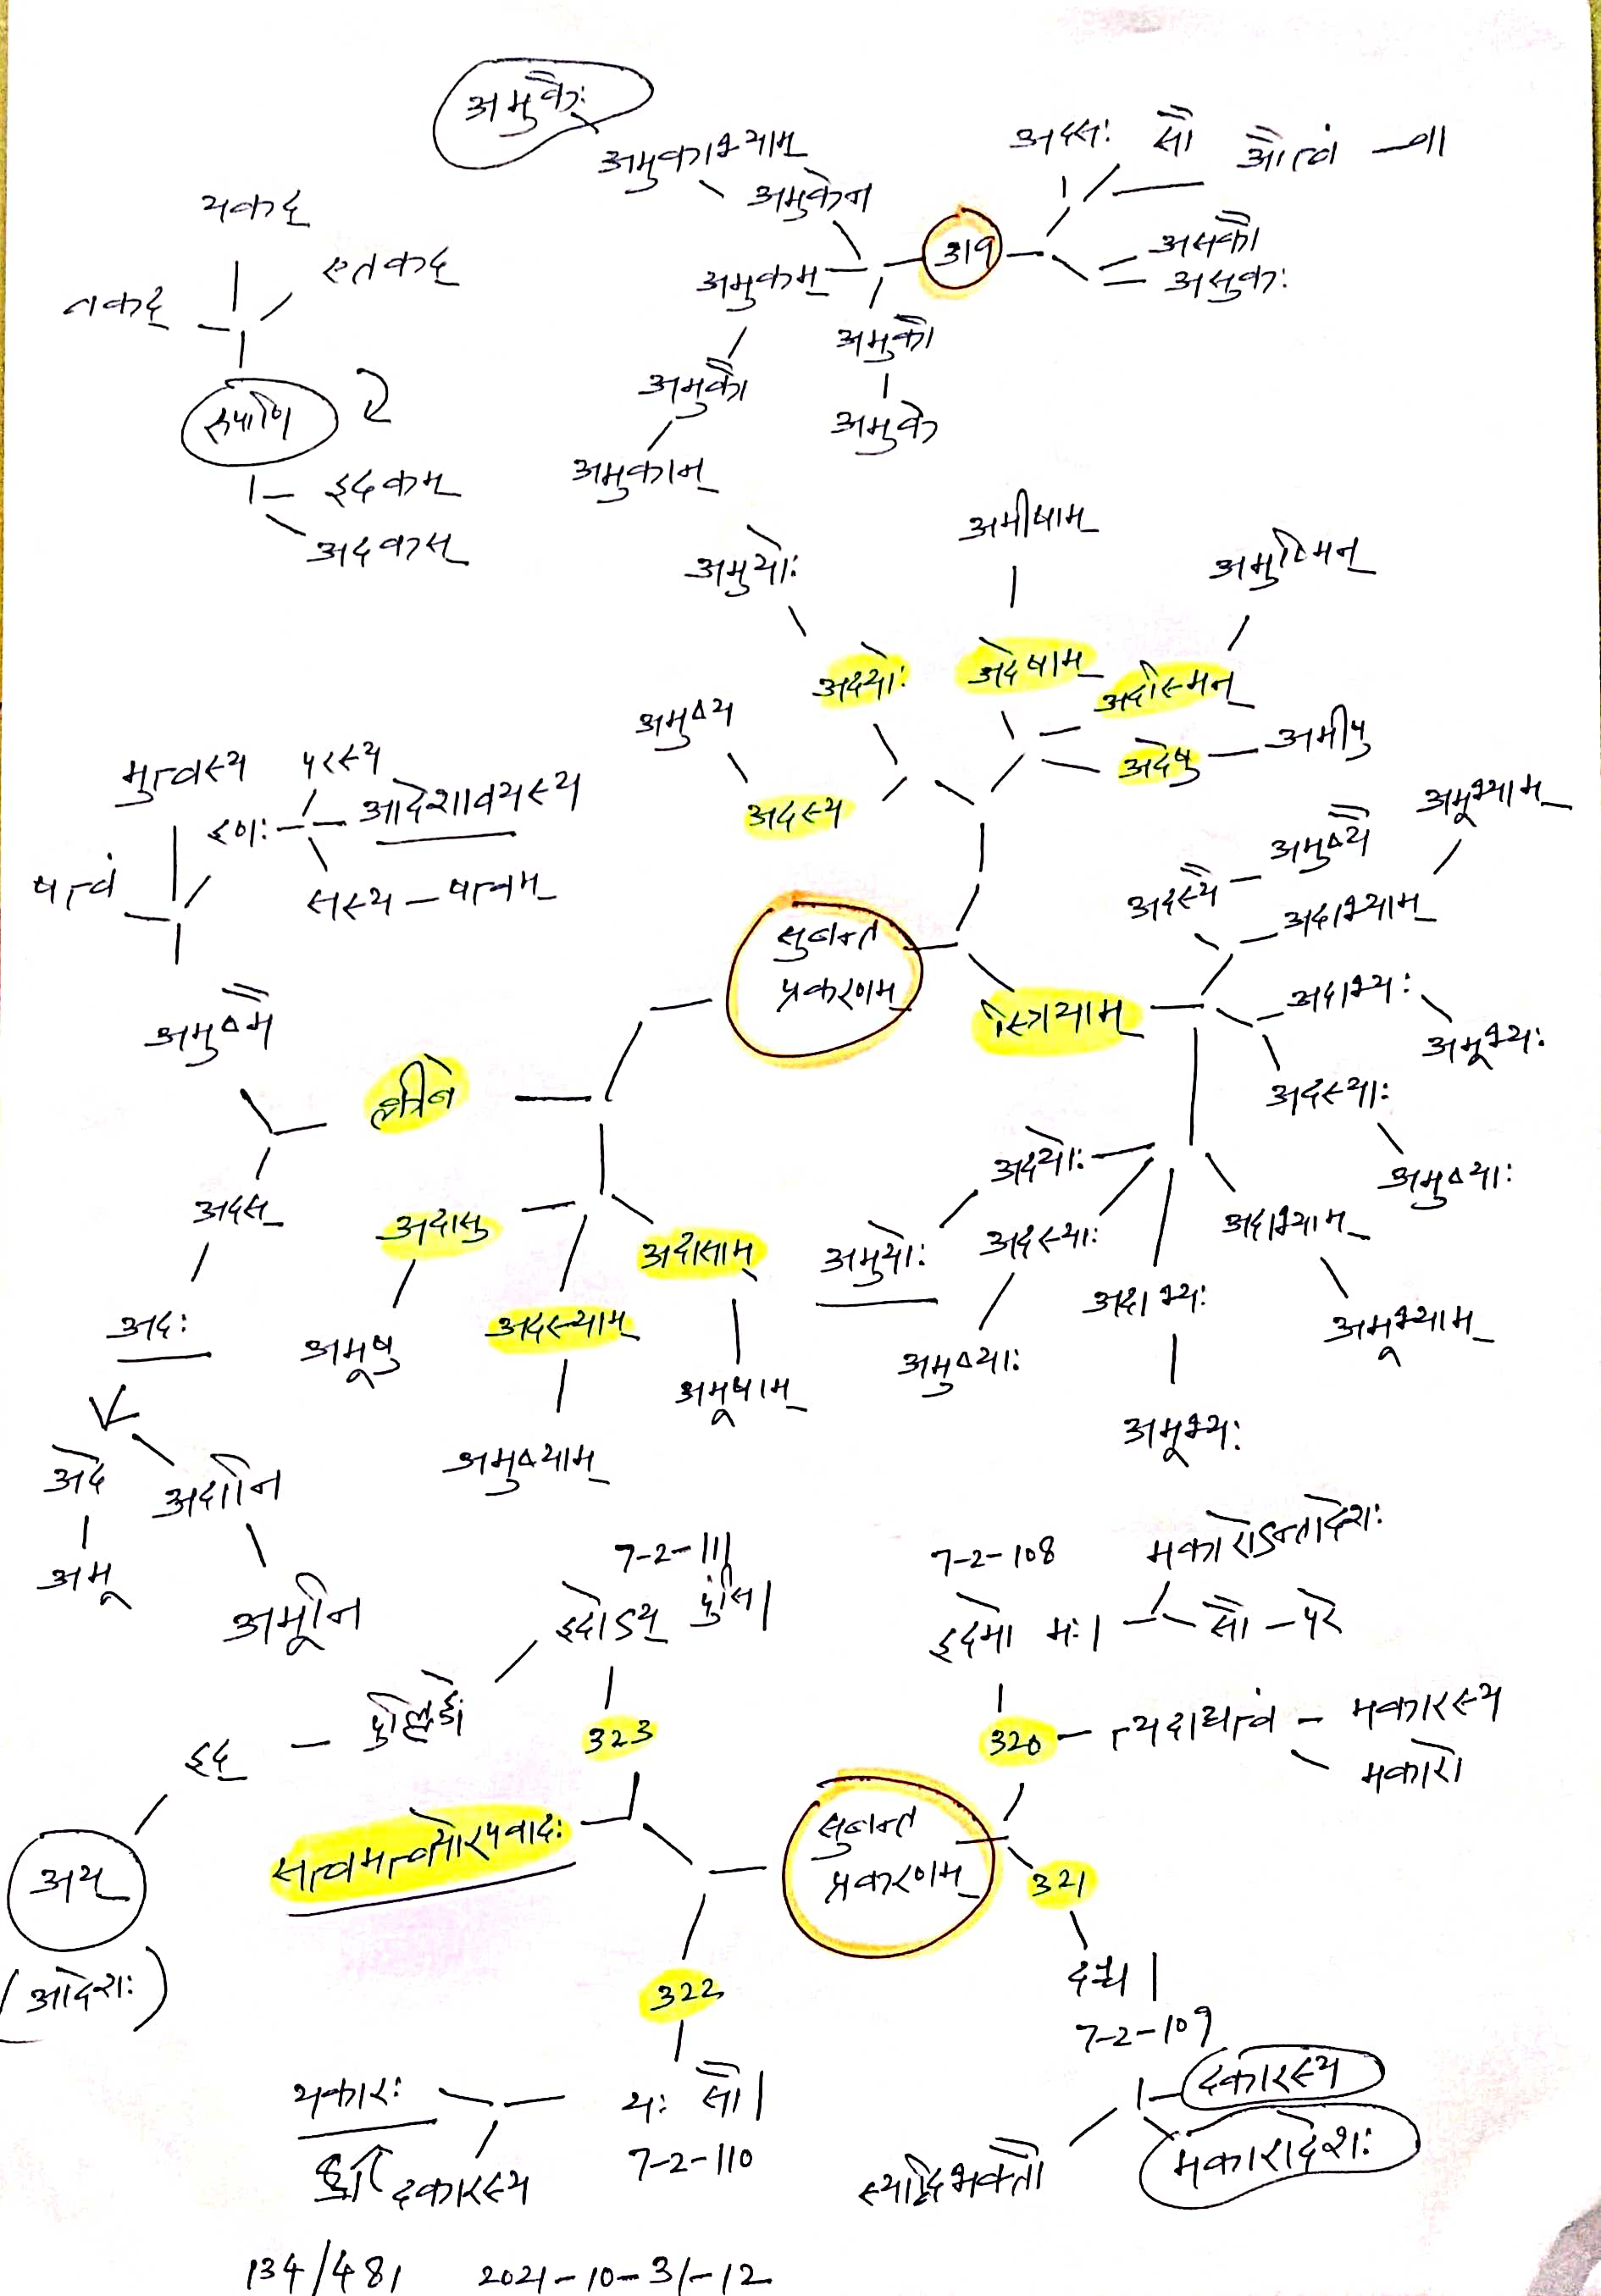 अमुकैः
अमुकाभ्याम्
अमुकेन
अदसः सौ औत्वं - वा
319
असकौ
असुकः
अमुकम्
अमुकौ
अमुके
अमुकौ
अमुकान्
यकद्
एतकद्
तकद्
रूपाणि
इदकम्
अदकस्
अमुयोः
अमीषाम्
अमुष्मिन्
अदयोः
अदेषाम्
अदस्मिन्
अमुष्य
अदस्य
अदेषु - अमीषु
मुत्वस्य
परस्य
इणः
आदेशावयस्य
षत्वं
सस्य - षत्वम्
अमुष्यै
अदस्यै
अमूभ्याम्
अदाभ्याम्
सुबन्त
प्रकरणम्
स्त्रियाम्
अदाभ्यः
अमूभ्यः
अदस्याः
अमुष्याः
अमुष्मै
क्लीबे
अदस्
अदः
अदासु
अमूषु
अदासाम्
अमूषाम्
अदस्याम्
अमुष्याम्
अदयोः
अमुयोः
अदस्याः
अमुष्याः
अदाभ्यः
अमूभ्यः
अदाभ्याम्
अमूभ्याम्
अदे
अदानि
अमू
अमूनि
7-2-111
इदोऽय् पुंसि।
323
पुंल्लिङ्गे
इद्
अय्
(आदेशः)
7-2-108
इदमो मः।
मकारोऽन्तादेशः
सौ - परे
320
त्यदाद्यत्वं - मकारस्य
मकारो
सत्वमत्वयोरपवादः
सुबन्त
प्रकरणम्
321
दश्च।
7-2-109
322
यः सौ।
7-2-110
यकारः
दकारस्य
दकारस्य
मकारादेशः
स्यादिभक्तौ
134/481 2021-10-31-12